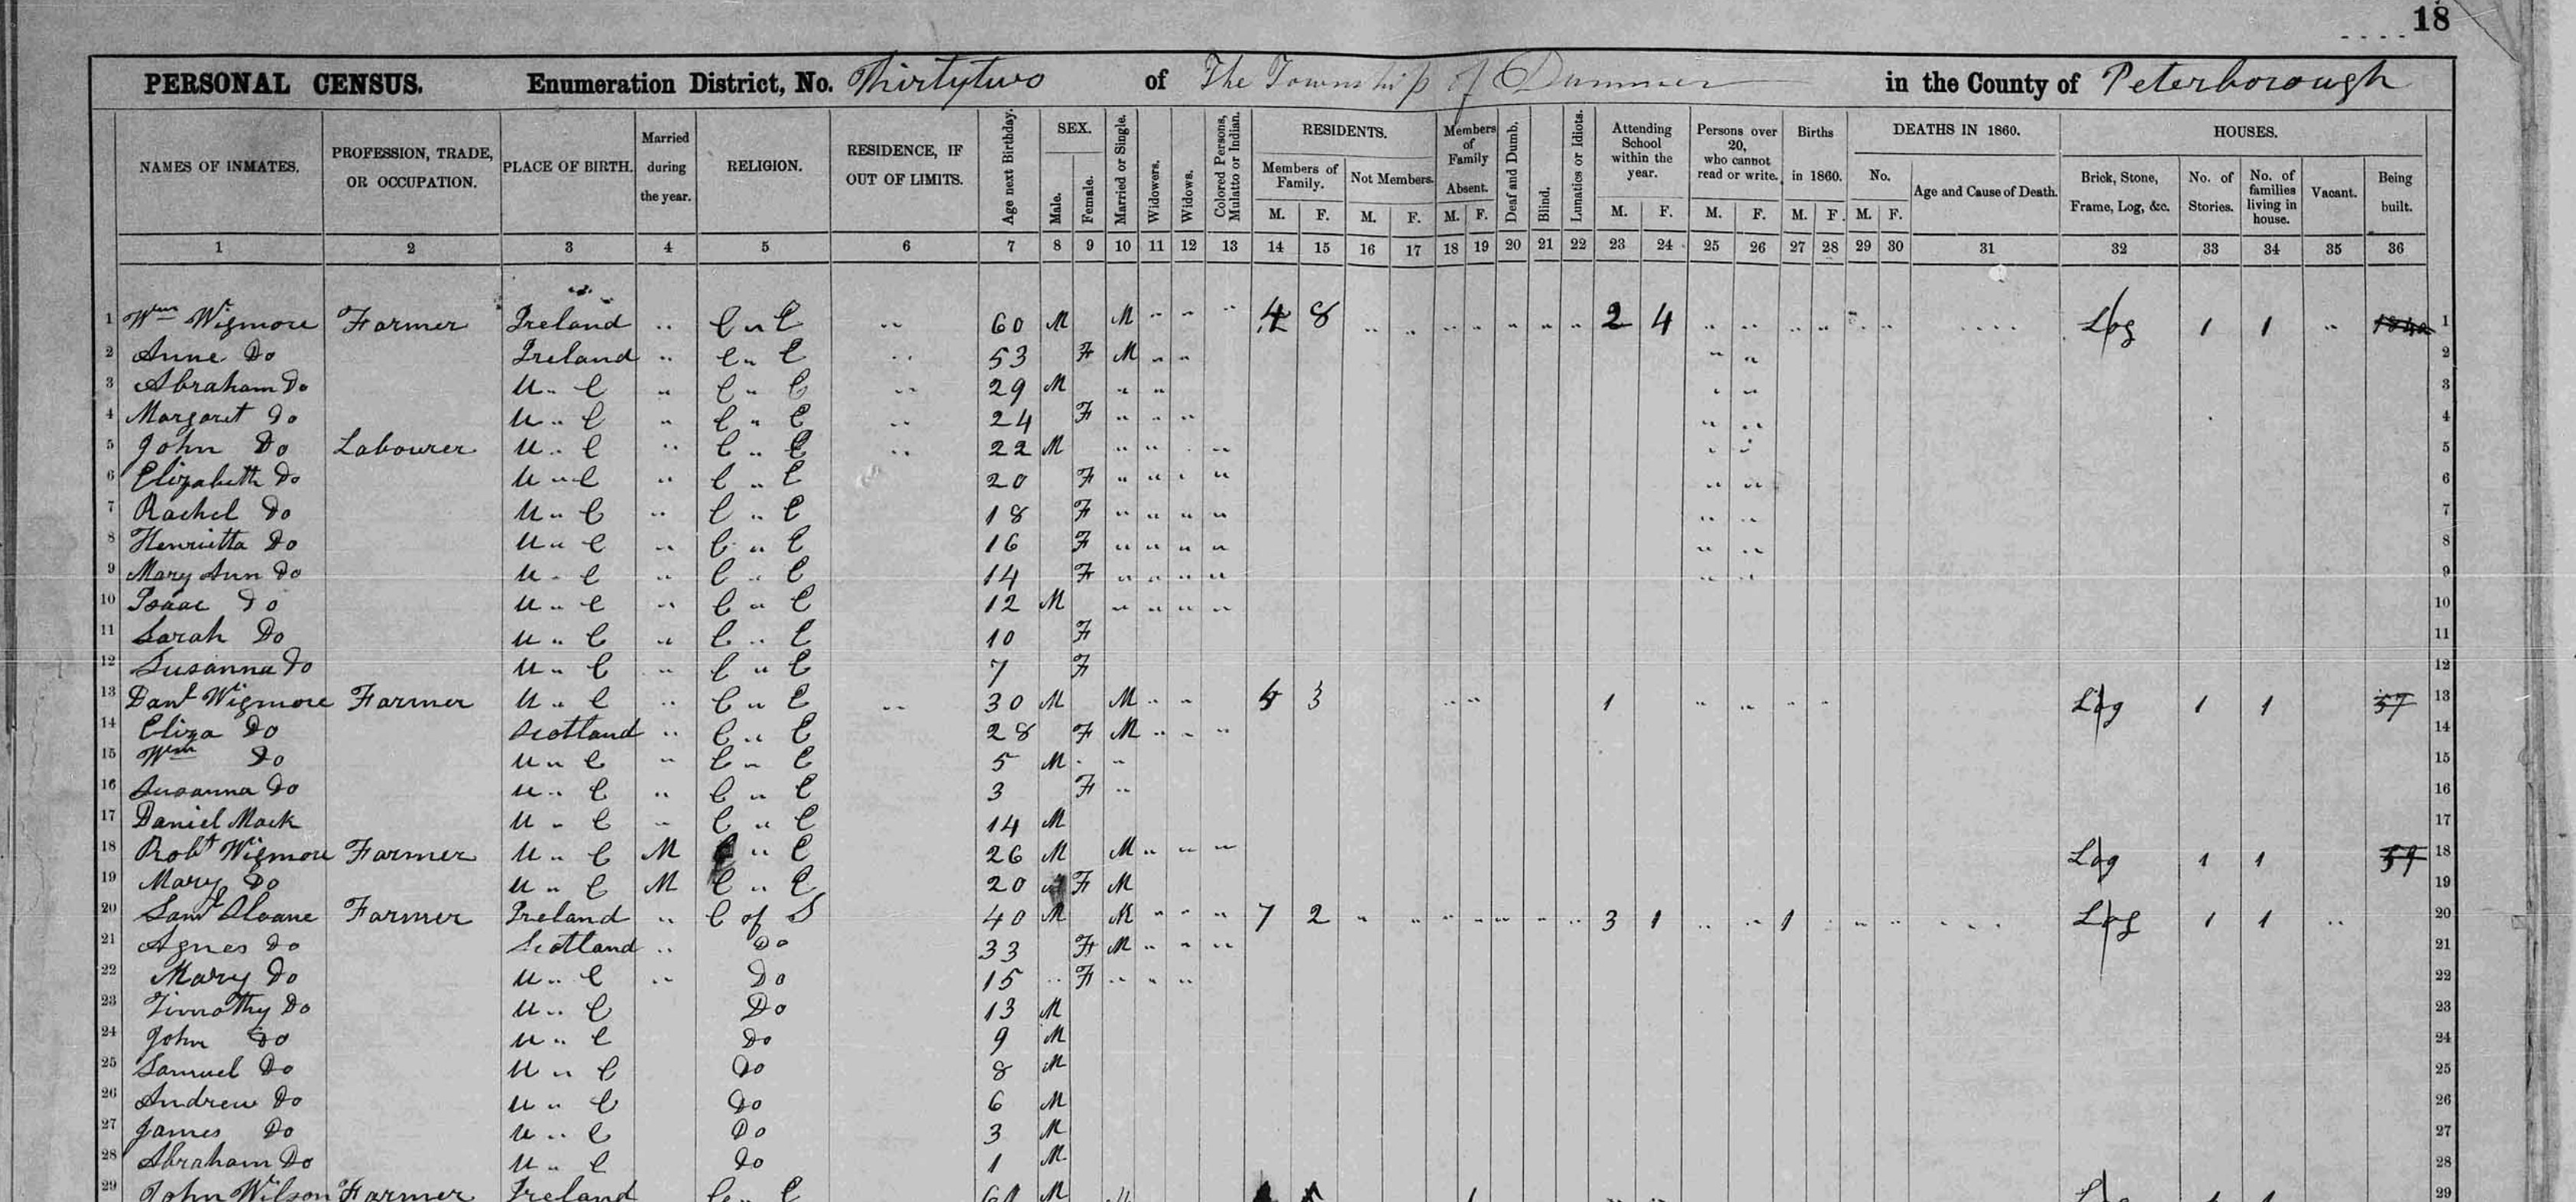 18
PERSONAL CENSUS. Enumeration District, No. Thirtytwo of The Township of Dummer in the County of Peterborough
NAMES OF INMATES. PROFESSION, TRADE, OR OCCUPATION. PLACE OF BIRTH. Married during the year. RELIGION. RESIDENCE, IF OUT OF LIMITS. Age next Birthday. SEX. Male. Female. Married or Single. Widowers. Widows. Colored Persons, Mulatto or Indian. RESIDENTS. Members of Family. M. F. Not Members. M. F. Members of Family Absent. M. F. Deaf and Dumb. Blind. Lunatics or Idiots. Attending School within the year. M. F. Persons over 20, who cannot read or write. M. F. Births in 1860. M. F. DEATHS IN 1860. No. M. F. Age and Cause of Death. HOUSES. Brick, Stone, Frame, Log, &c. No. of Stories. No. of families living in house. Vacant. Being built.
1 2 3 4 5 6 7 8 9 10 11 12 13 14 15 16 17 18 19 20 21 22 23 24 25 26 27 28 29 30 31 32 33 34 35 36
1 Wm Wigmore Farmer Ireland " C " E " 60 M M " " " 4 8 " " " " " " " 2 4 " " " " " " .... Log 1 1 " 1
2 Anne Do Ireland " C " E " 53 F M " " " " 2
3 Abraham Do U " C " C " E " 29 M " " " " 3
4 Margaret Do U " C " C " E " 24 F " " " " " 4
5 John Do Labourer U " C " C " E " 22 M " " " " " " 5
6 Elizabeth Do U " C " C " E 20 F " " " " " " 6
7 Rachel Do U " C " C " E 18 F " " " " " " 7
8 Henrietta Do U " C " C " E 16 F " " " " " " 8
9 Mary Ann Do U " C " C " E 14 F " " " " " " 9
10 Isaac Do U " C " C " E 12 M " " " " 10
11 Sarah Do U " C " C " E 10 F 11
12 Susanna Do U " C " C " E 7 F 12
13 Danl Wigmore Farmer U " C " C " E " 30 M M " " 4 3 " " 1 " " " " Log 1 1 57 13
14 Eliza Do Scotland " C " E 28 F M " " " 14
15 Wm Do U " C " C " E 5 M " " 15
16 Susanna Do U " C " C " E 3 F " 16
17 Daniel Mack U " C " C " E 14 M 17
18 Robt Wigmore Farmer U " C M C " E 26 M M " " " Log 1 1 59 18
19 Mary Do U " C M C " E 20 F M 19
20 Saml Sloane Farmer Ireland " C of S 40 M M " " " 7 2 " " " " " " " 3 1 " " 1 " " " .... Log 1 1 " 20
21 Agnes Do Scotland " Do 33 F M " " " 21
22 Mary Do U " C " Do 15 " F " " " 22
23 Timothy Do U " C Do 13 M 23
24 John Do U " C Do 9 M 24
25 Samuel Do U " C Do 8 M 25
26 Andrew Do U " C Do 6 M 26
27 James Do U " C Do 3 M 27
28 Abraham Do U " C Do 1 M 28
29 John Wilson Farmer Ireland C " E M 29